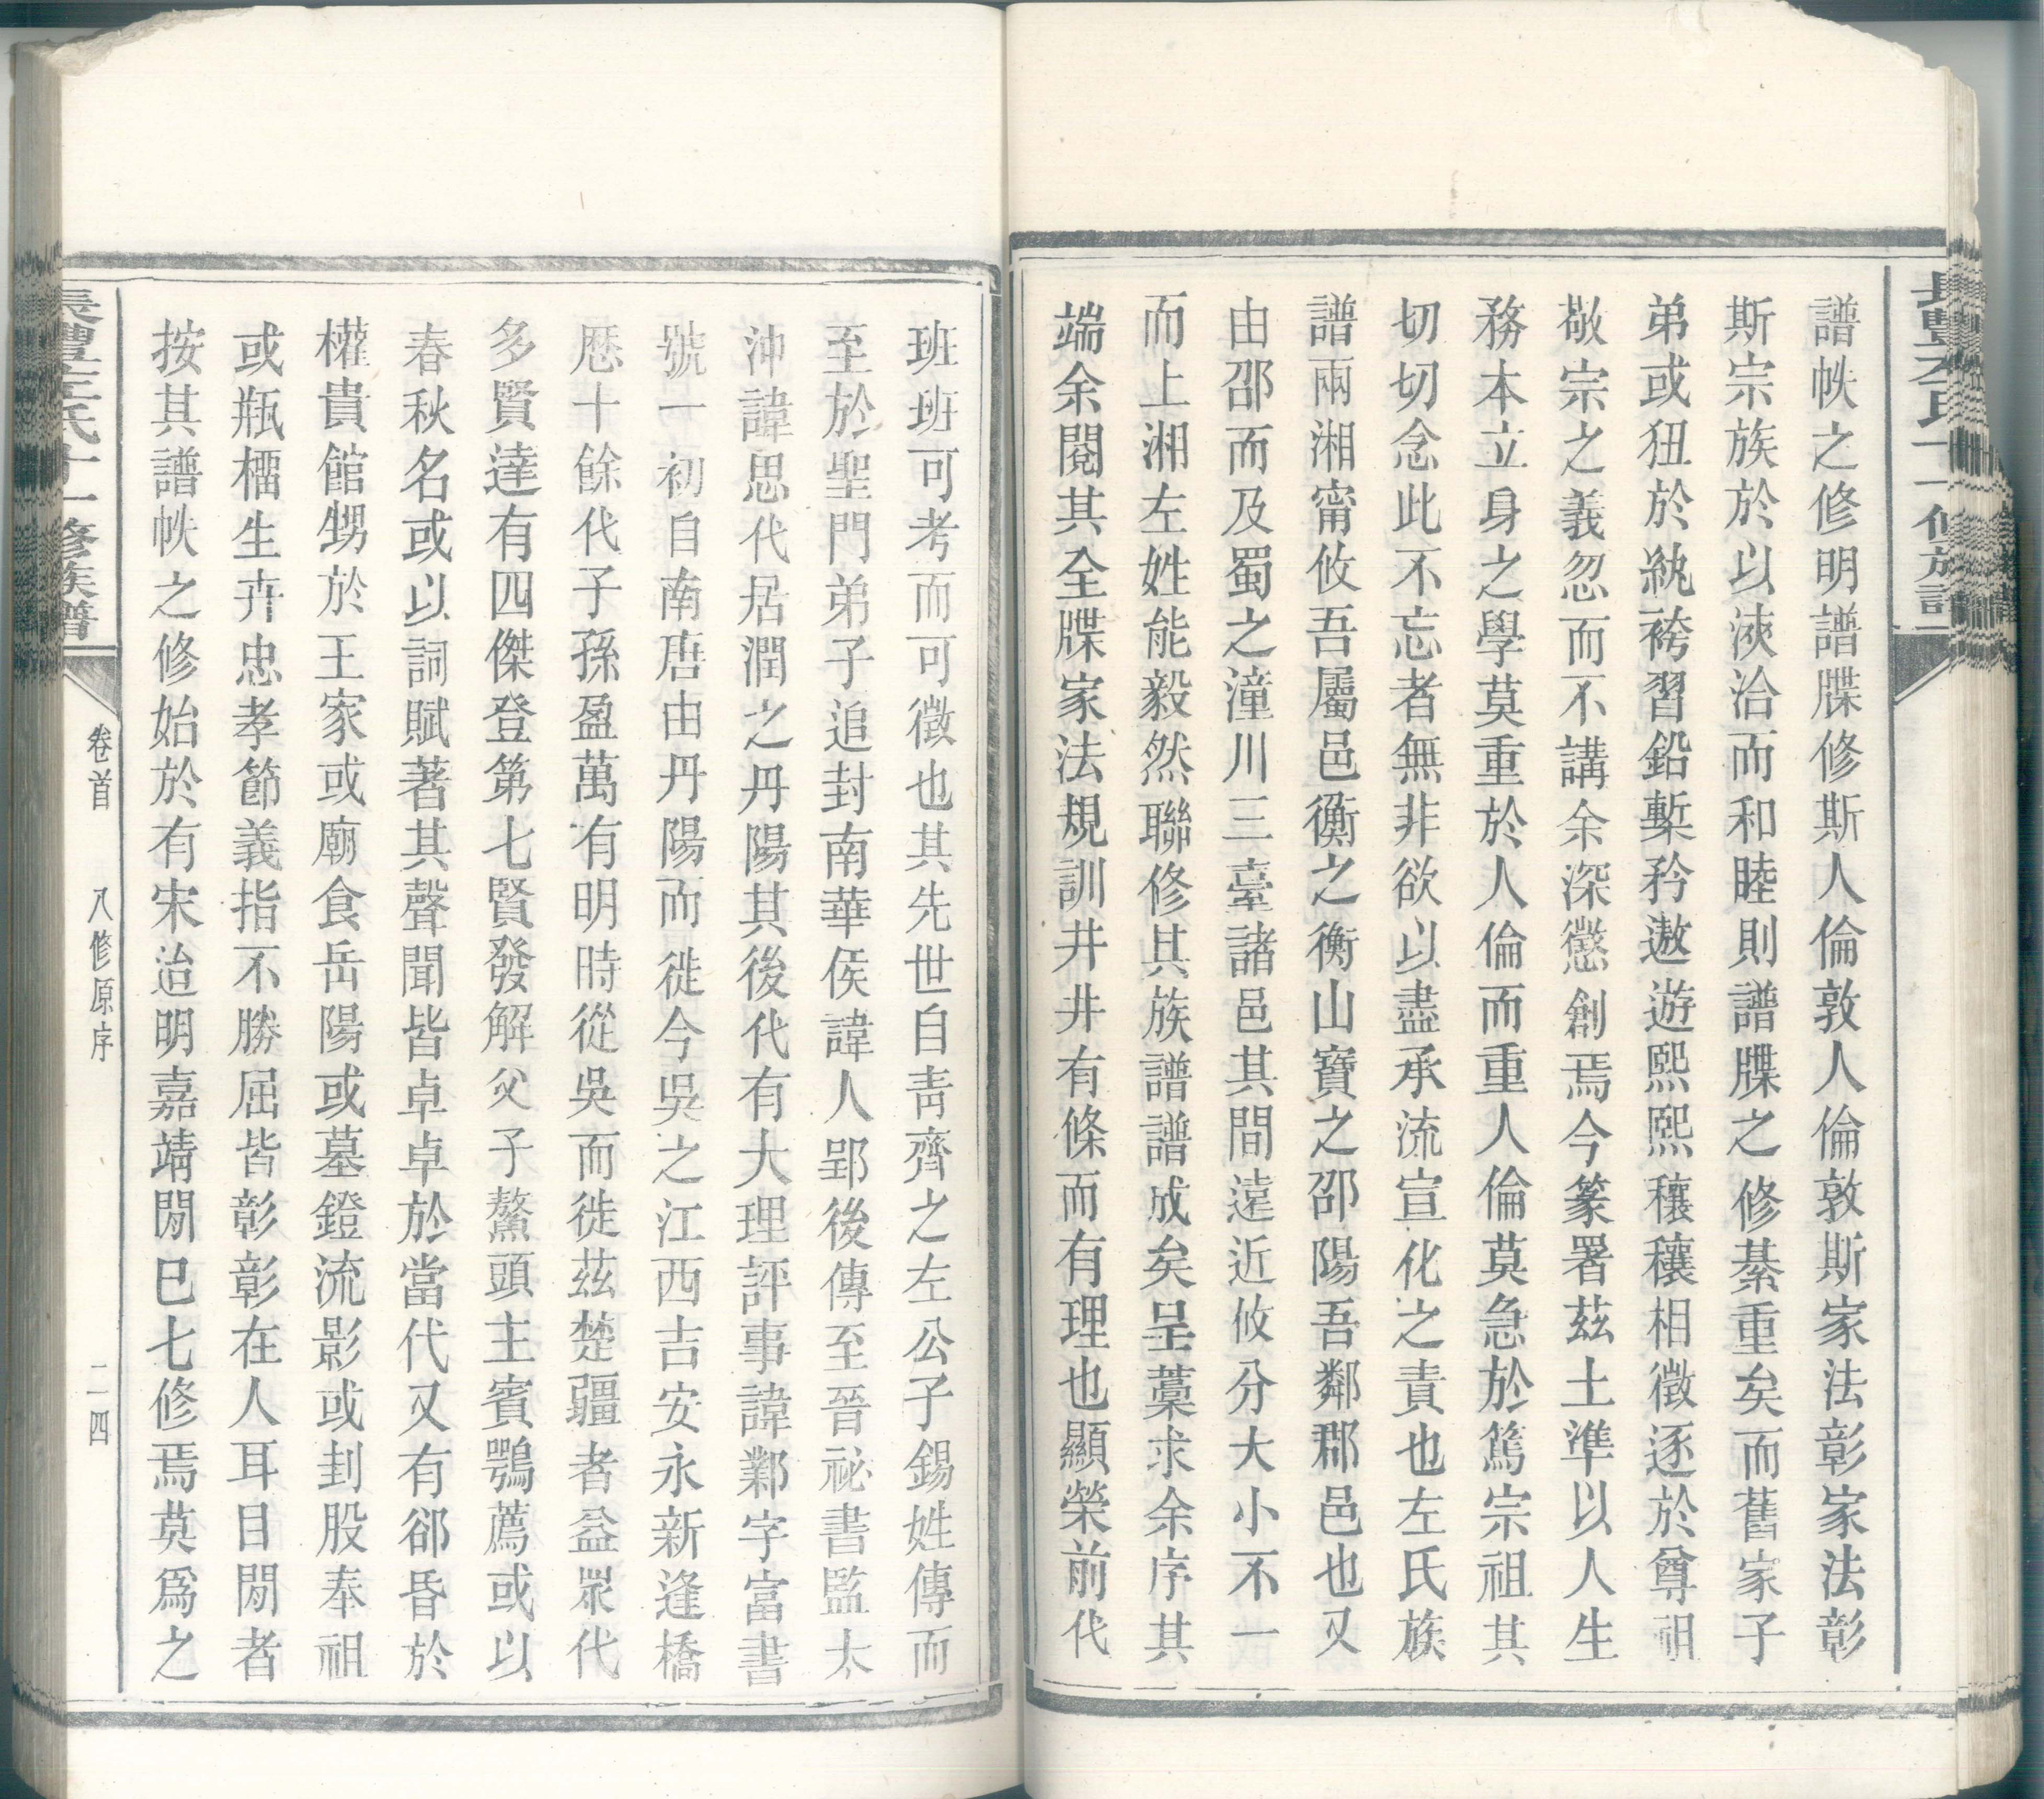 譜帙之修明譜牒修斯人倫敦人倫敦斯家法彰家法彰
斯宗族於以浹洽而和睦則譜牒之修綦重矣而舊家子
弟或狃於紈袴習鉛槧矜遨遊熙熙穰穰相徵逐於尊祖
敬宗之義忽而不講余深懲創焉今篆署茲土準以人生
務本立身之學莫重於人倫而重人倫莫急於篤宗祖其
切切念此不忘者無非欲以盡承流宣化之責也左氏族
譜兩湘甯攸吾屬邑衡之衡山寶之邵陽吾鄰郡邑也又
由邵而及蜀之潼川三臺諸邑其間遠近攸分大小不一
而上湘左姓能毅然聯修其族譜譜成矣呈藁求余序其
端余閱其全牒家法規訓井井有條而有理也顯榮前代
班班可考而可徵也其先世自靑齊之左公子錫姓傳而
至於聖門弟子追封南華侯諱人郢後傳至晉祕書監太
沖諱思代居潤之丹陽其後代有大理評事諱鄴字富書
號一初自南唐由丹陽而徙今吳之江西吉安永新逢橋
歷十餘代子孫盈萬有明時從吳而徙茲楚疆者益眾代
多賢達有四傑登第七賢發解父子鰲頭主賓鶚薦或以
春秋名或以詞賦著其聲聞皆卓卓於當代又有卻昏於
權貴館甥於王家或廟食岳陽或墓鐙流影或刲股奉祖
或瓶櫺生卉忠孝節義指不勝屈皆彰彰在人耳目閒者
按其譜帙之修始於有宋迨明嘉靖閒巳七修焉莫爲之
卷首　八修原序　二四
氏十一修族譜